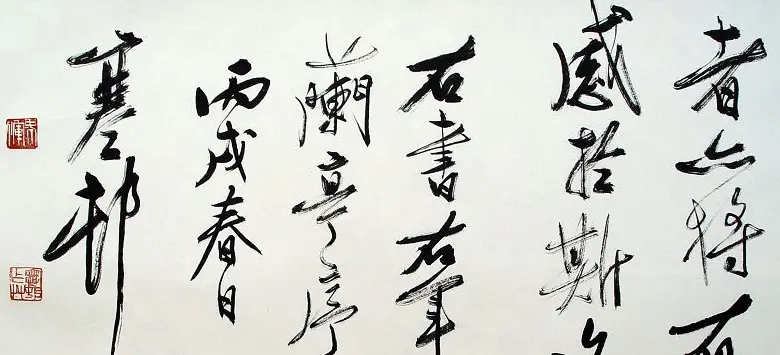 者亦將有
感於斯文
右書右軍
蘭亭序
丙戌春日
寒邨